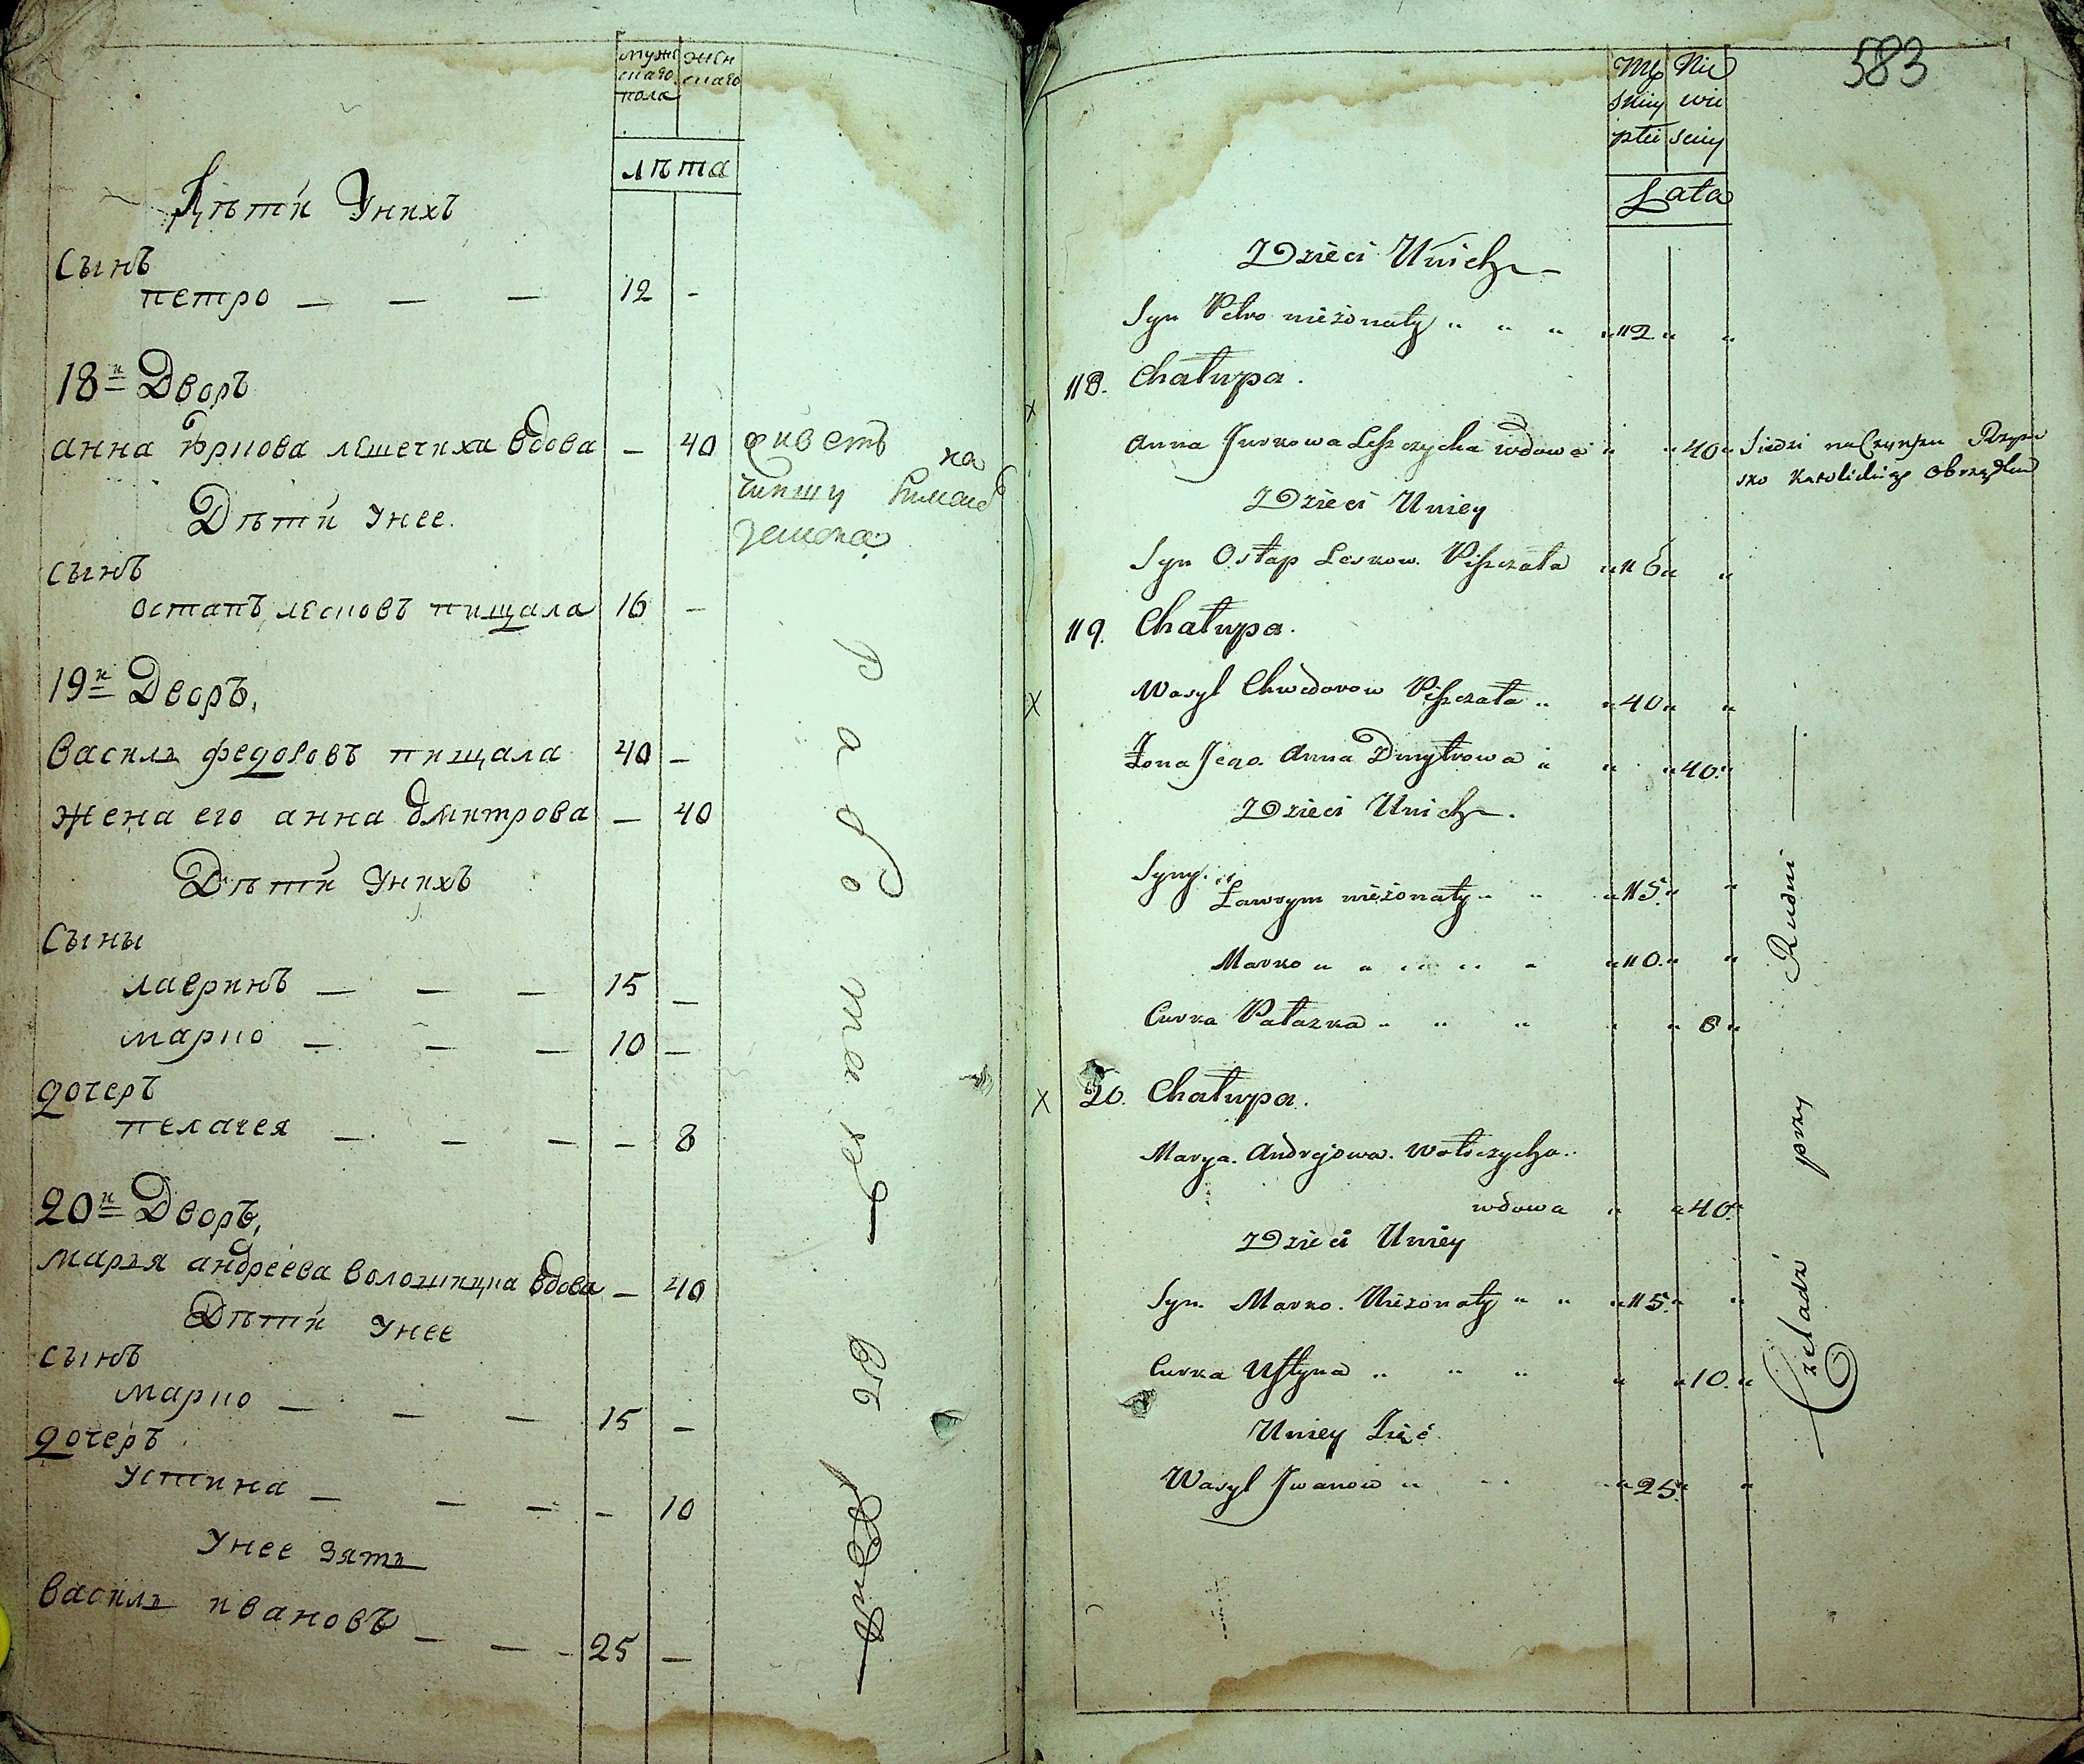 мужскаго пола
женскаго
лѣта
Дѣти У нихъ
Сынъ
петро — — — 12 -
18й Дворъ
анна юркова лешечиха вдова — 40 живетъ на
чиншу
Дѣти У нее.
сынъ
остапъ лесковъ пищала 16 —
19й Дворъ,
Василь федоровъ пищала 40 —
жена его анна дмитрова — 40
Дѣти У нихъ
Сыны
лавринъ — — — 15 —
марко — — — 10 —
дочеръ
пелагея — — — — 8
20й Дворъ,
марья андреева волошицка вдова — 40
Дѣти У нее
сынъ
марко — — — 15 —
дочеръ
устина — — — — 10
У нее зять
василь ивановъ — — - 25 —
работает в Рудни
583
Męskiey płci
Niewieściey
Lata
Dzieci U nich
Syn Petro nieżonaty " " " " 12 " "
18. Chałupa.
Anna Jurkowa Leszczycha wdowa " " 40 " Siedzi na Czynszu Rzym
sko Katolickiego Obrządku
Dzieci U niey
Syn Ostap Leskow. Piszczała " 16 " "
19. Chałupa.
Wasyl Chwedorow Piszczała " " 40 " "
Żona Jego Anna Dmytrowa " " " 40 "
Dzieci U nich.
Syny.
Ławrym nieżonaty " " " 15 " "
Marko " " " " " " 10 " "
Curka Pałazka " " " " " 8 "
20. Chałupa.
Marya. Andrejowa. Wołoczycha.
wdowa " " 40 "
Dzieci U niey
Syn. Marko. Nieżonaty " " " 15 " "
Curka Ustyna " " " " " 10 "
U niey Zięć
Wasyl Jwanow " " " 25 " "
Czeladź przy Rudni —